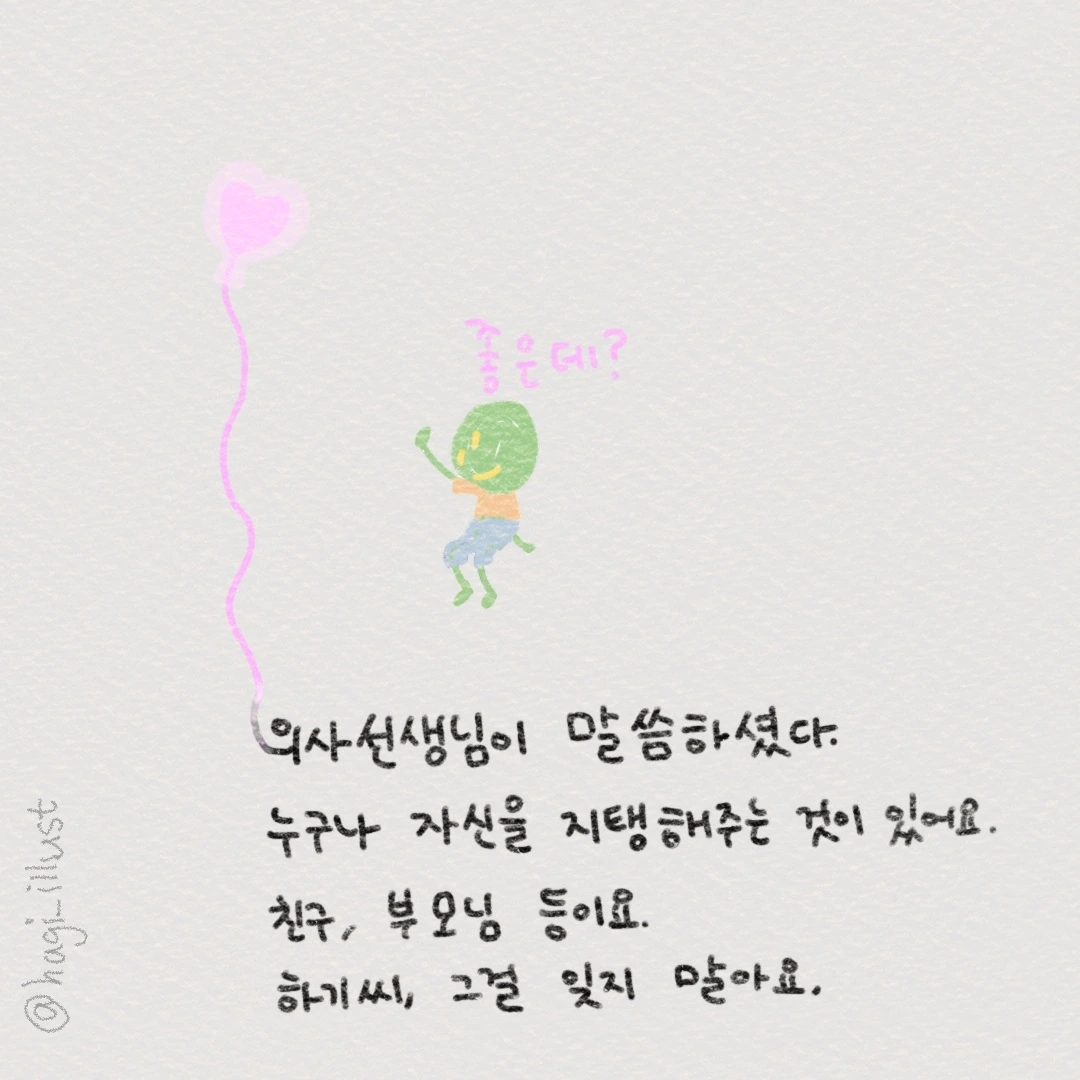 좋은데?
의사선생님이 말씀하셨다.
누구나 자신을 지탱해주는 것이 있어요.
친구, 부모님 등이요.
하기씨, 그걸 잊지 말아요.
@hagi_illust